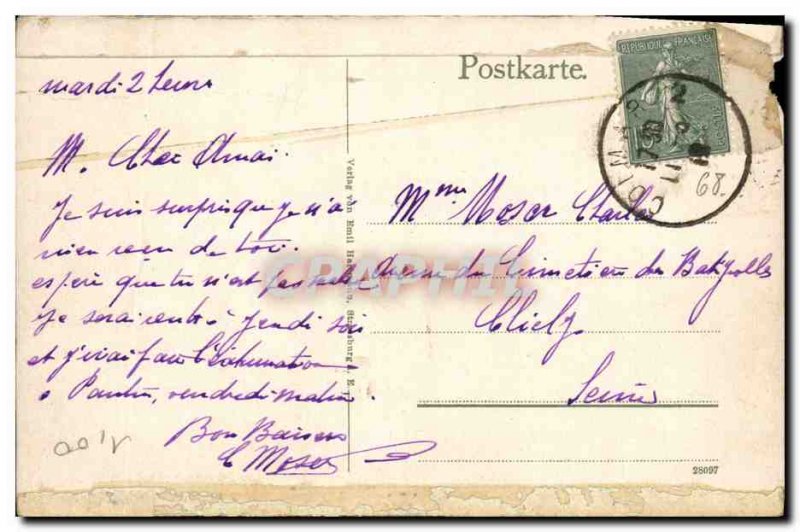 mardi 2 heures
Postkarte.
REPUBLIQUE FRANÇAISE
15
COLMAR
M. Cher
Je suis surprise que je n'ai
rien reçu de toi.
espère que tu n'est pas
Je serai rentré Jeudi soir
et j'irai faire l'exhumation
à Pantin, vendredi matin.
Bon Baisers
C Moser
Mme Moser Charles
Avenue du Cimetière des Batignolles
Clichy
Seine
Verlag von Emil Strassburg i. E.
CPAPHIL
28097
68.